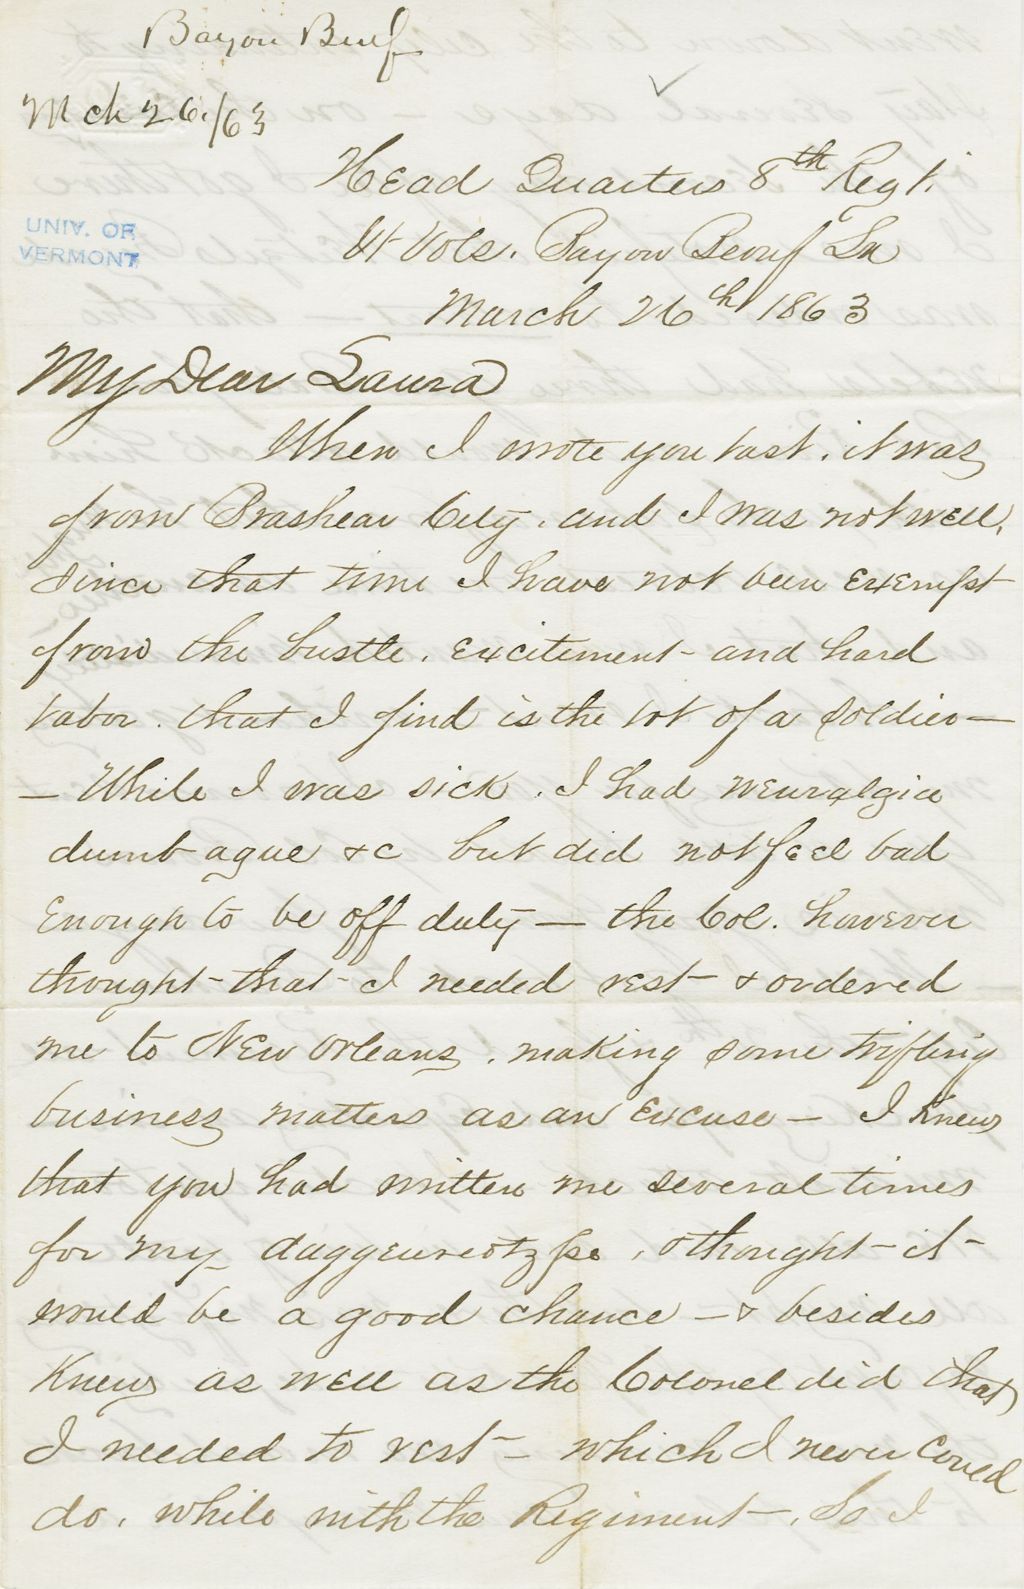 Bayou Beuf
Mch 26./63
Head Quarters 8th Regt.
Vt Vols. Bayou Beouf La
UNIV. OF
VERMONT
March 26th 1863
My Dear Laura
When I wrote you last, it was
from Brashear City, and I was not well,
since that time I have not been exempt
from the bustle, excitement and hard
labor, that I find is the lot of a soldier —
— While I was sick, I had neuralgia
dumb ague &c but did not feel bad
Enough to be off duty — the Col. however
thought that I needed rest & ordered
me to New Orleans, making some trifling
business matters as an excuse — I knew
that you had written me several times
for my daggeureotype, & thought it
would be a good chance — & besides
Knew as well as the Colonel did that
I needed to rest — which I never could
do, while with the Regiment —, So I